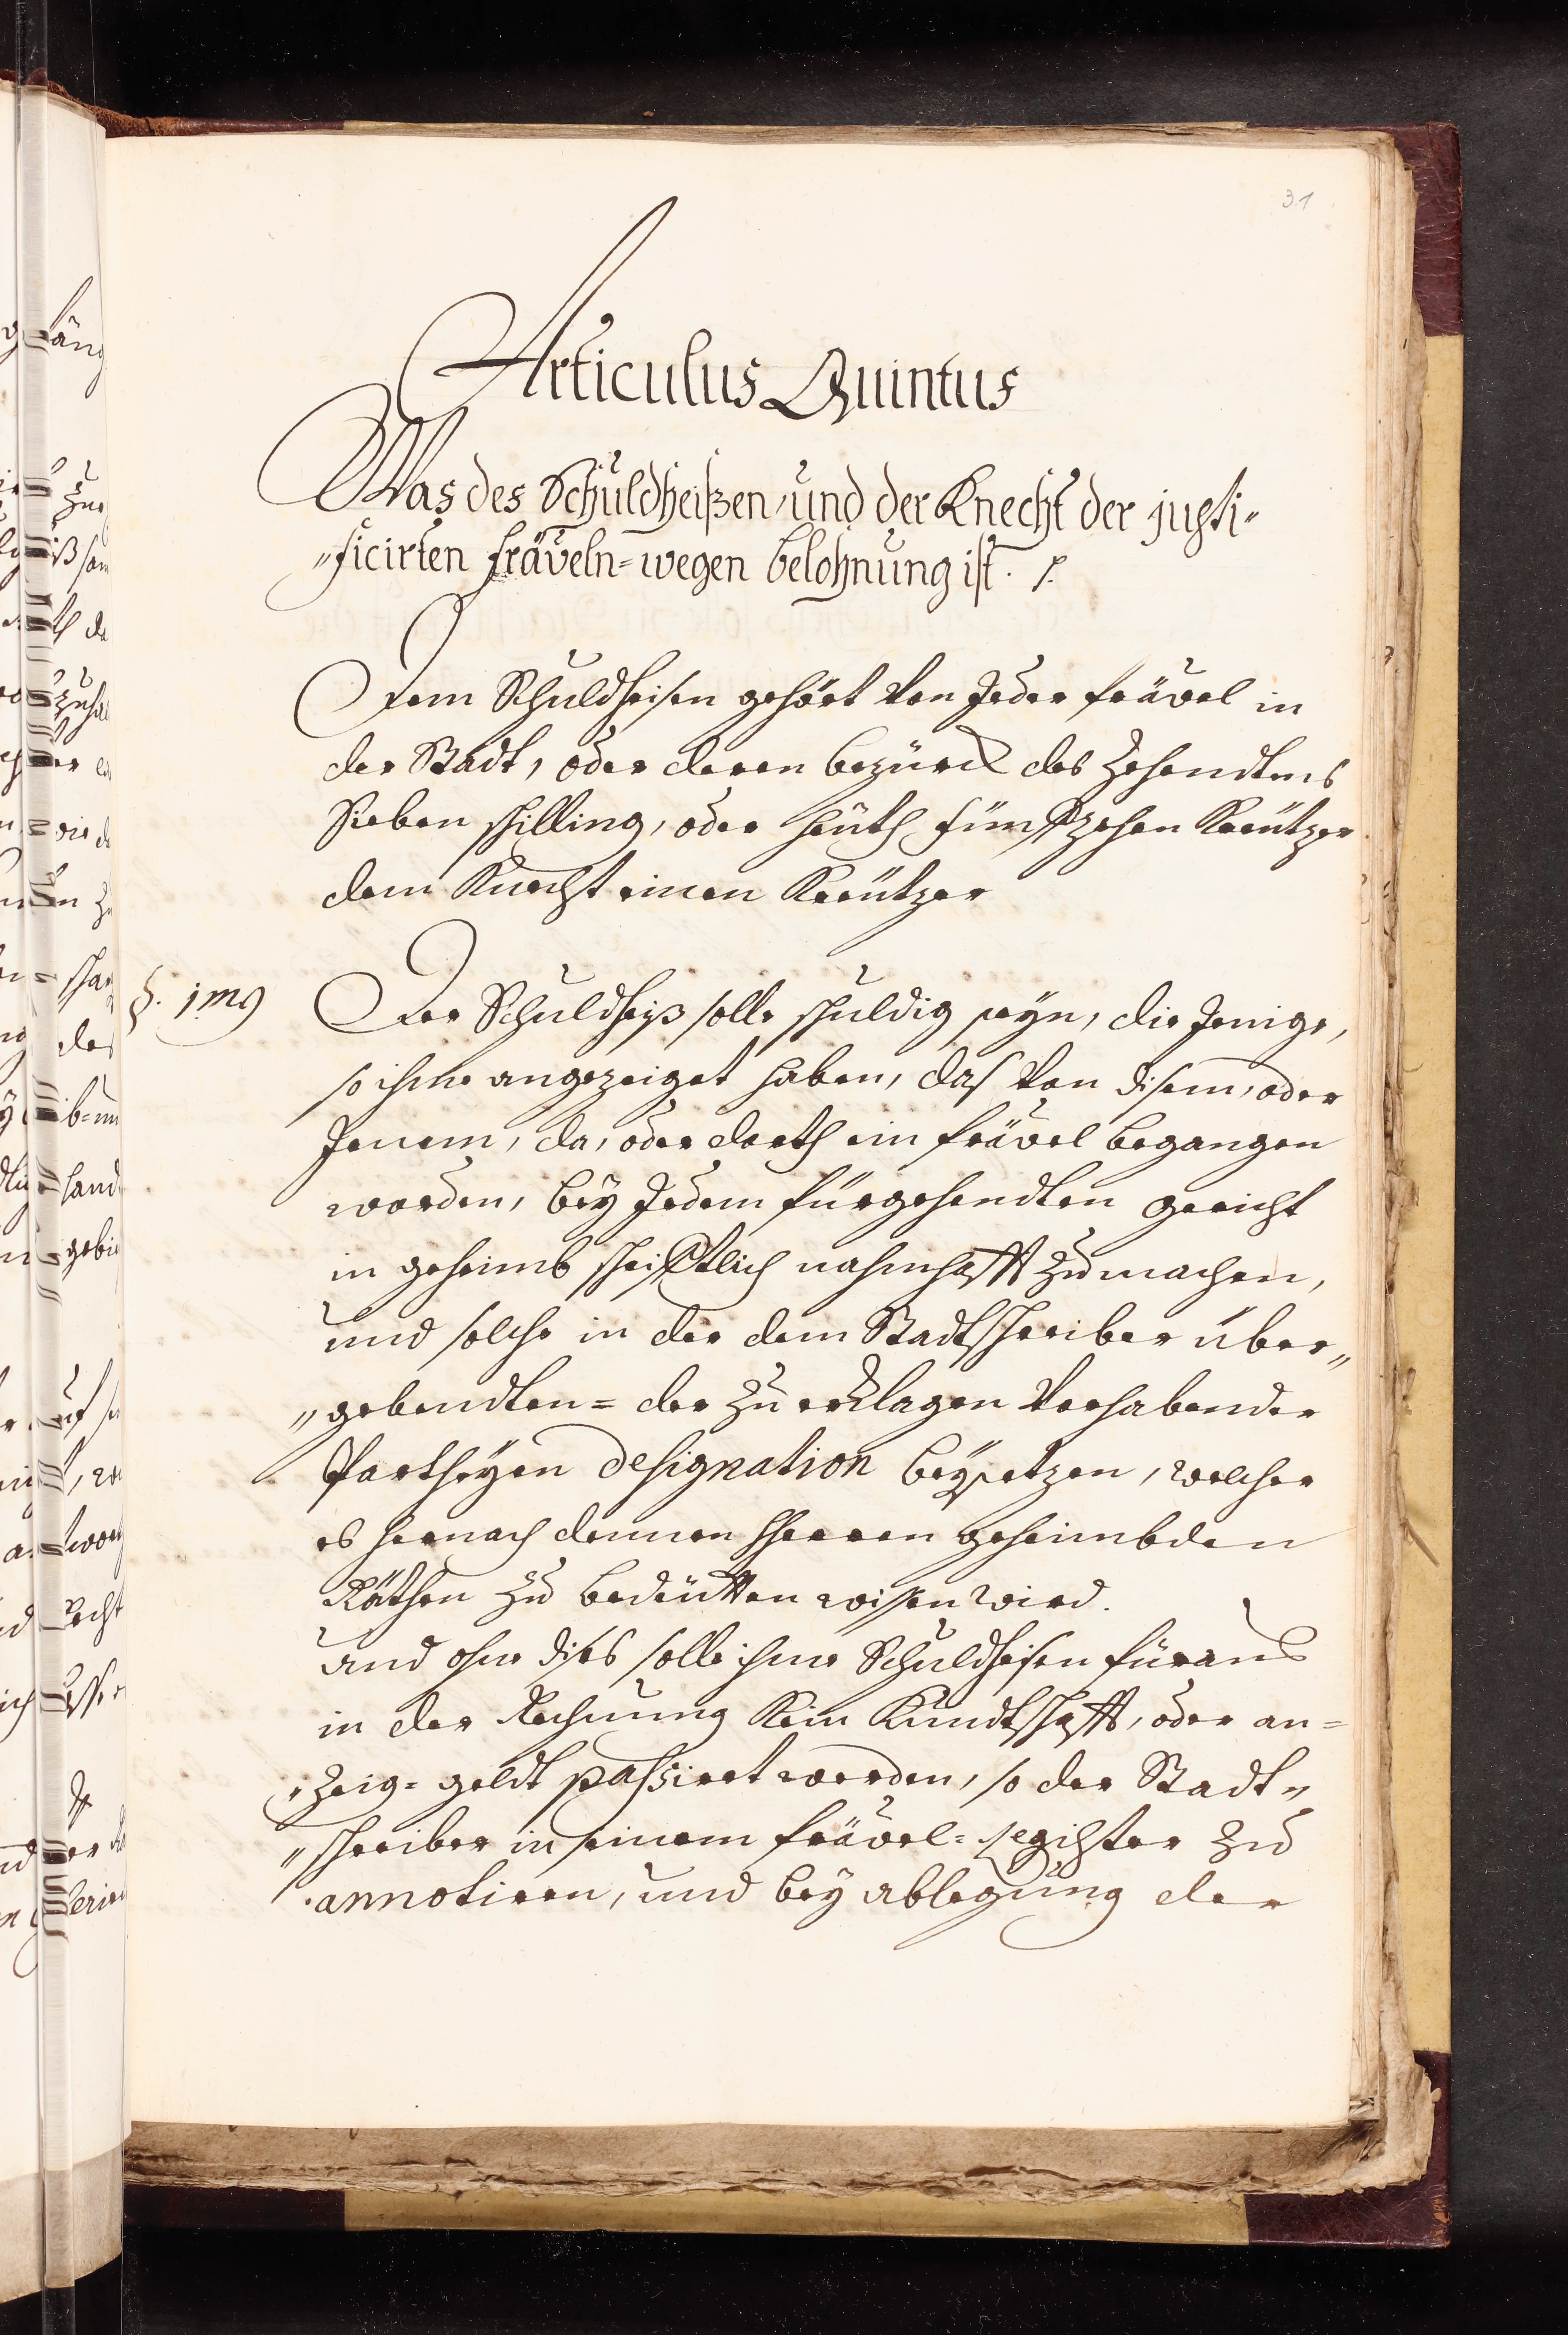 31
Articulus Quintus
Was des Schuldheißen, und der Knecht der justi„
„ficirten fräveln=wegen belohnung ist. /.
Dem Schuldheisen gehört von Jeder frävel in
der Stadt, oder deren bezürck des Zehendtens
Sieben schilling, oder heüth fünffzehen Kreützer
dem Knecht einen Kreützer
§. 1mg Der Schuldheiß solle schuldig seyn, die Jenige,
so ihme angezeiget haben, das von disem, oder
Jenem, da, oder dorth ein frävel begangen
worden, bey Jedem fürgehendten gericht
in geheimb schrifftlich nahmhafft zu machen,
und solche in der dem Stadtschreiber über„
„gebendten= der zu erklagen vorhabender
Partheyen designation beysetzen, welcher
es hernach dennen Herren geheimbden
Räthen zu bedeütten wissen wird.
und ohne dises solle ihme Schuldheisen füraus
in der Rechnung kein Kundtschafft, oder an=
„zeig= geldt passiret werden, so der Stadt„
„schreiber in seinem frävel= register zu
annotiren, und bey ablegung der